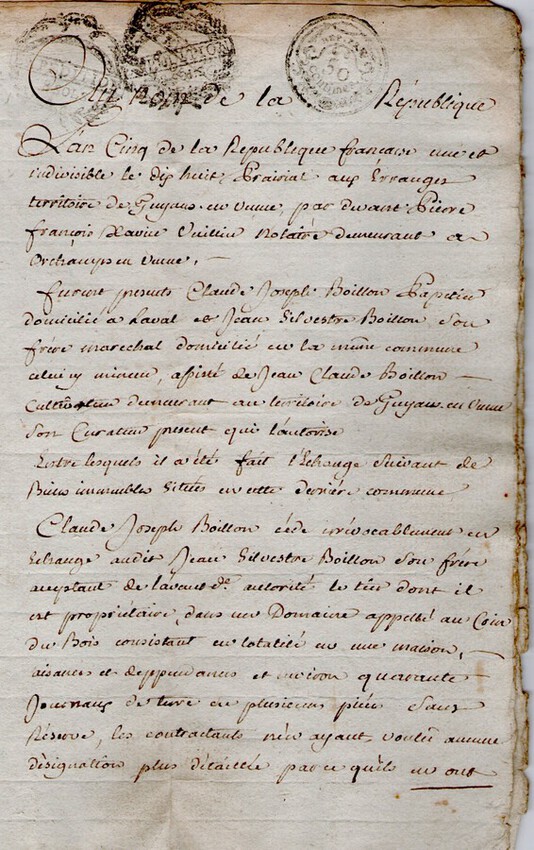 Au Nom de la République
L'an Cinq de la République française une et
indivisible le dix huit Prairial aux Erranges
territoire de Guyans en venne, par devant Pierre
françois Xavier Vuillin Notaire demeurant a
Orchamps en venne,
furent presents Claude Joseph Boillon Papetier
domicilié à Laval et Jean Silvestre Boillon Son
frère maréchal domicilié en la même commune
celui cy mineur, assisté de Jean Claude Boillon
Cultivateur demeurant au territoire de Guyans en venne
Son Curateur present qui l'autorise
Entre lesquels il a été fait l'Echange Suivant de
Biens immeubles Situés en cette derniere commune
Claude Joseph Boillon cède irrévocablement en
Echange audit Jean Silvestre Boillon Son frère
acceptant de l'avant de autorité le tiers dont il
est propriétaire, dans un Domaine appellé au Coin
du Bois consistant en totalité en une maison,
aisances et deppendances et environ quarante
Journaux de terre en plusieurs pièces Sans
Réserve, les contractants n'en ayant voulu aucune
désignation plus détaillée parce qu'ils en ont